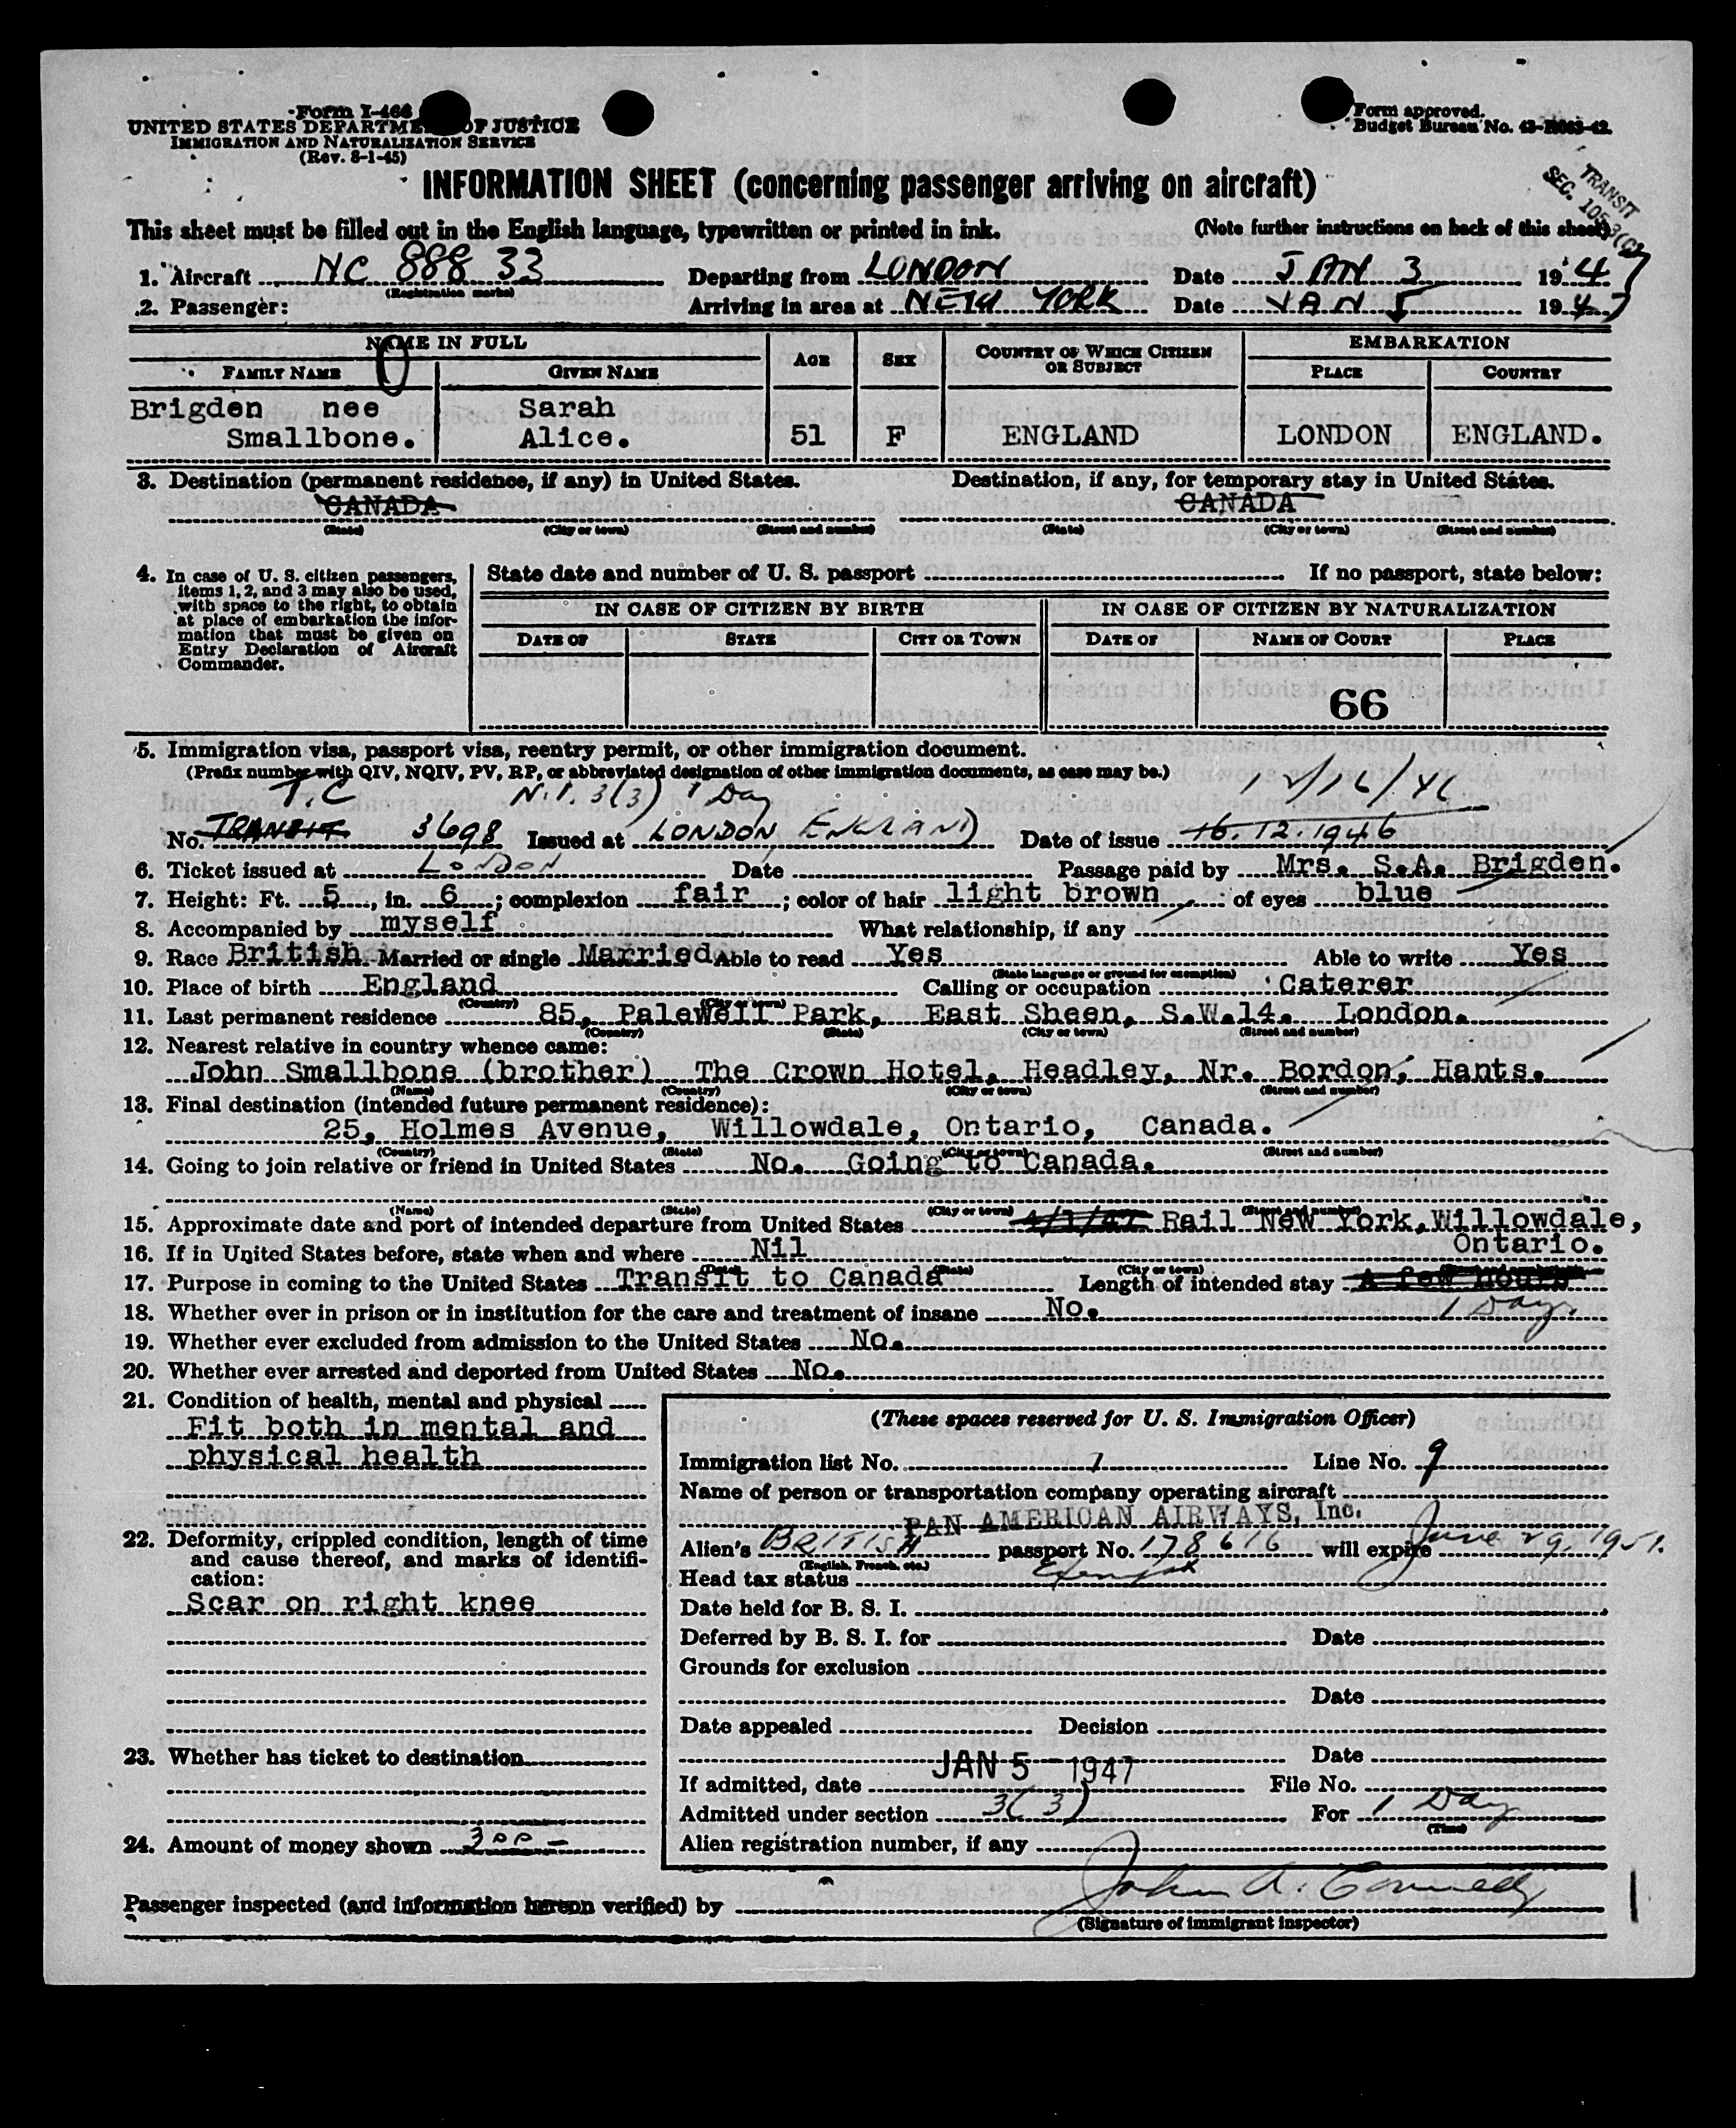 Form I-466
UNITED STATES DEPARTMENT OF JUSTICE
IMMIGRATION AND NATURALIZATION SERVICE
(Rev. 8-1-45)
Form approved.
Budget Bureau No. 43-R063-42.
TRANSIT
SEC. 105.3(c)
INFORMATION SHEET (concerning passenger arriving on aircraft)
This sheet must be filled out in the English language, typewritten or printed in ink. (Note further instructions on back of this sheet)
1. Aircraft NC 88833 Departing from LONDON Date JAN 3 1947
(Registration marks)
2. Passenger: Arriving in area at NEW YORK Date JAN 5 1947
NAME IN FULL
FAMILY NAME GIVEN NAME AGE SEX COUNTRY OF WHICH CITIZEN OR SUBJECT EMBARKATION PLACE COUNTRY
Brigden nee Sarah
Smallbone. Alice. 51 F ENGLAND LONDON ENGLAND.
3. Destination (permanent residence, if any) in United States. Destination, if any, for temporary stay in United States.
CANADA CANADA
(State) (City or town) (Street and number) (State) (City or town) (Street and number)
4. In case of U. S. citizen passengers, items 1, 2, and 3 may also be used, with space to the right, to obtain at place of embarkation the information that must be given on Entry Declaration of Aircraft Commander.
State date and number of U. S. passport If no passport, state below:
IN CASE OF CITIZEN BY BIRTH IN CASE OF CITIZEN BY NATURALIZATION
DATE OF STATE CITY OR TOWN DATE OF NAME OF COURT PLACE
66
5. Immigration visa, passport visa, reentry permit, or other immigration document.
(Prefix number with QIV, NQIV, PV, RP, or abbreviated designation of other immigration documents, as case may be.)
T.C 3(3) 1 Day 12/16/46
No. TRANSIT 3698 Issued at LONDON, ENGLAND Date of issue 16.12.1946
6. Ticket issued at LONDON Date Passage paid by Mrs. S.A. Brigden.
7. Height: Ft. 5, in. 6; complexion fair; color of hair light brown of eyes blue
8. Accompanied by myself What relationship, if any
9. Race British Married or single Married Able to read Yes Able to write Yes
(State language or ground for exemption)
10. Place of birth England Calling or occupation Caterer
(Country) (City or town)
11. Last permanent residence 85, Palewell Park, East Sheen, S.W.14. London.
(Country) (State) (City or town) (Street and number)
12. Nearest relative in country whence came:
John Smallbone (brother) The Crown Hotel, Headley, Nr. Bordon, Hants.
(Name) (Country) (City or town) (Street and number)
13. Final destination (intended future permanent residence):
25, Holmes Avenue, Willowdale, Ontario, Canada.
(Country) (State) (City or town) (Street and number)
14. Going to join relative or friend in United States No. Going to Canada.
(Name) (State) (City or town) (Street and number)
15. Approximate date and port of intended departure from United States Rail New York, Willowdale,
16. If in United States before, state when and where Nil Ontario.
(Date) (State) (City or town) (Street and number)
17. Purpose in coming to the United States Transit to Canada Length of intended stay A few hours
18. Whether ever in prison or in institution for the care and treatment of insane No. 1 Day.
19. Whether ever excluded from admission to the United States No.
20. Whether ever arrested and deported from United States No.
21. Condition of health, mental and physical
Fit both in mental and
physical health
22. Deformity, crippled condition, length of time and cause thereof, and marks of identification:
Scar on right knee
23. Whether has ticket to destination
24. Amount of money shown 300 —
(These spaces reserved for U. S. Immigration Officer)
Immigration list No. 1 Line No. 9
Name of person or transportation company operating aircraft
PAN AMERICAN AIRWAYS, Inc.
Alien's BRITISH passport No. 178616 will expire June 29, 1951.
(English, French, etc.)
Head tax status Exempt
Date held for B. S. I.
Deferred by B. S. I. for Date
Grounds for exclusion
Date
Date appealed Decision
Date
If admitted, date JAN 5 - 1947 File No.
Admitted under section 3(3) For 1 Day
(Time)
Alien registration number, if any
Passenger inspected (and information hereon verified) by John A. Connedy
(Signature of immigrant inspector)